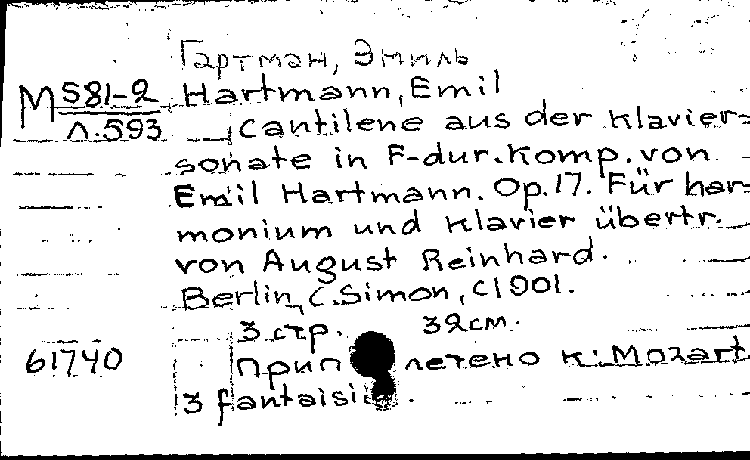 Гартман, Эмиль
М 581-2
Л.593
Hartmann, Emil
Cantilene aus der Klavier=
sonate in F-dur. Komp. von
Emil Hartmann. Op. 17. Für har=
monium und Klavier übertr.
von August Reinhard.
Berlin, C. Simon, c1901.
3 стр. 32 см.
61740
Мозart
3 fantaisi